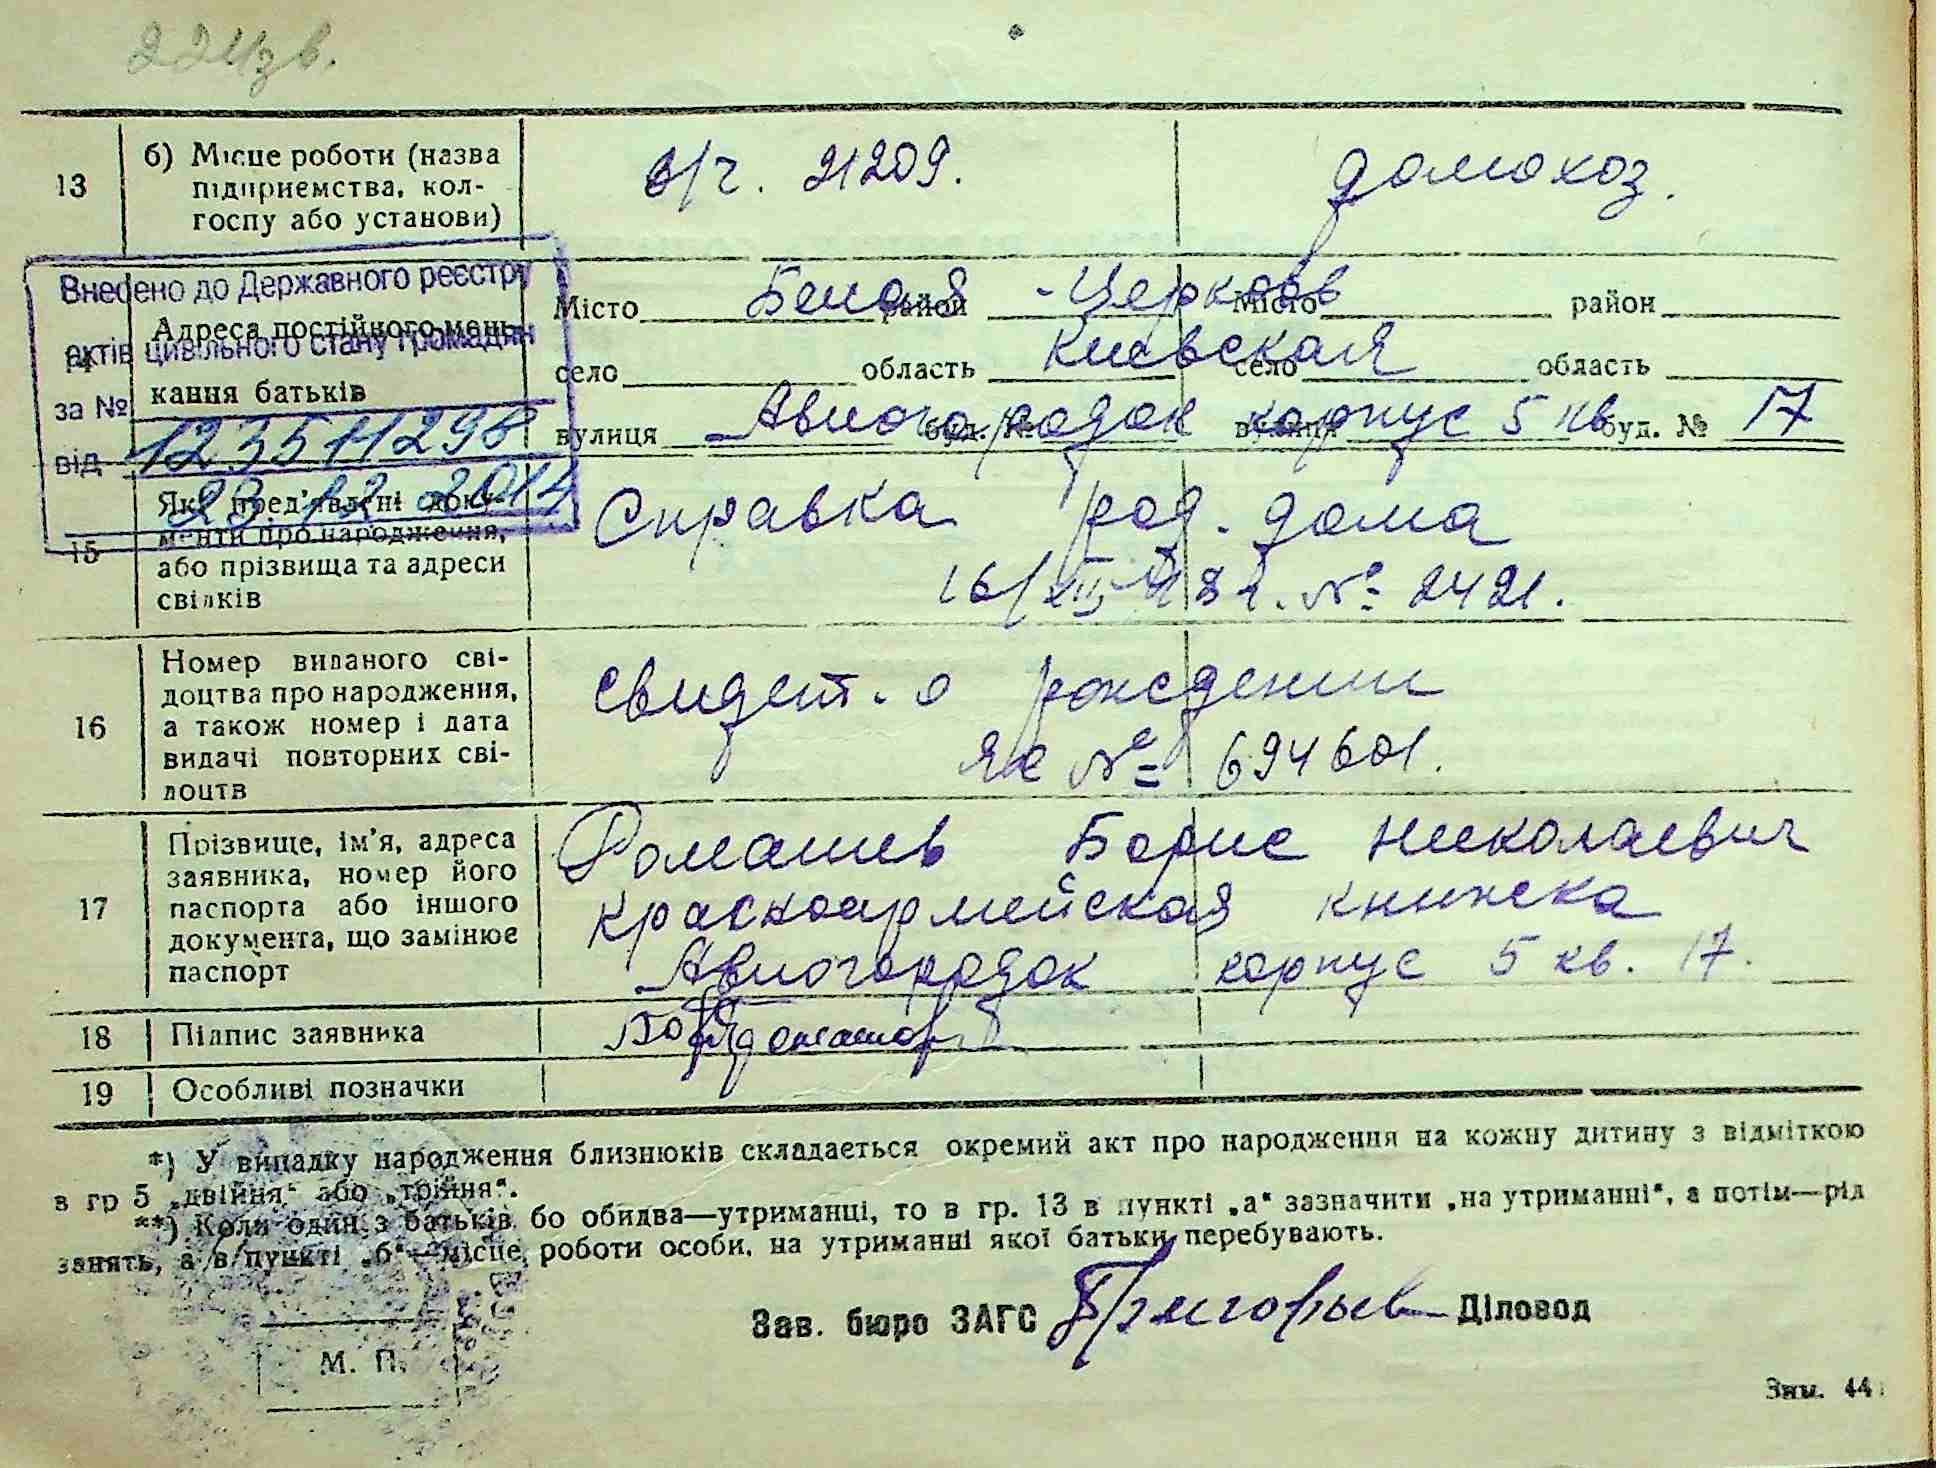 13
б) Місце роботи (назва
підприємства, кол-
госпу або установи)
в/ч. 21209.
домохоз.
Внесено до Державного реєстру
актів цивільного стану громадян
за №
12351129
від 23.12.2014
Адреса постійного меш-
кання батьків
Місто Белая район - Церковь Місто район
село область Киевская село область
вулиця Авиогородок буд. № корпус 5 кв вулиця буд. № 17
15
Які пред'явлені доку-
менти про народження,
або прізвища та адреси
свідків
Справка род. дома
16/ № 2421.
16
Номер виданого сві-
доцтва про народження,
а також номер і дата
видачі повторних сві-
доцтв
свидет. о рождении
№ 694601.
17
Прізвище, ім'я, адреса
заявника, номер його
паспорта або іншого
документа, що замінює
паспорт
Ромашев Борис Николаевич
красноармейская книжка
Авиогородок корпус 5 кв. 17.
18 Підпис заявника
19 Особливі позначки
*) У випадку народження близнюків складається окремий акт про народження на кожну дитину з відміткою
в гр 5 „двійня“ або „трійня“.
**) Коли один з батьків бо обидва—утриманці, то в гр. 13 в пункті „а“ зазначити „на утриманні“, а потім—рід
занять, а в пункті „б“—місце роботи особи, на утриманні якої батьки перебувають.
Зав. бюро ЗАГС Григорьев Діловод
М. П.
Зям. 44